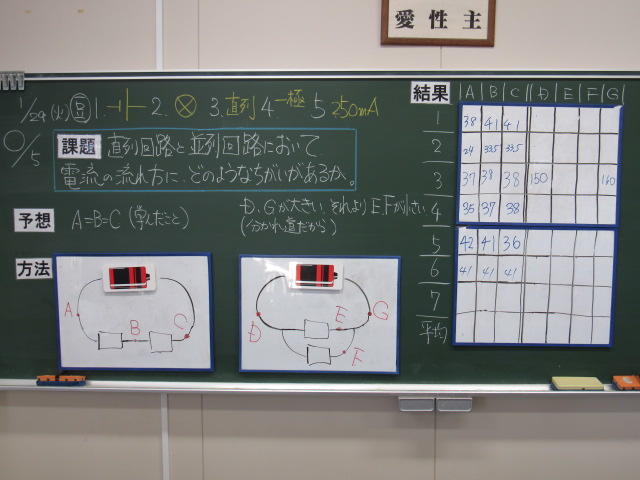 主性愛
1/29(火) 豆 1. 2. 3.直列 4.一極 5 250mA
○/5
課題 直列回路と並列回路において
電流の流れ方に、どのようなちがいがあるか。
予想 A=B=C (学んだこと)
D,Gが大きい、それよりE,Fが小さい
(分かれ道だから)
方法
A B C
D E F G
結果 A B C D E F G
1 38 41 41
2 24 33.5 33.5
3 37 38 38 150 160
4 35 37 38
5 42 41 36
6 41 41 41
7
平均